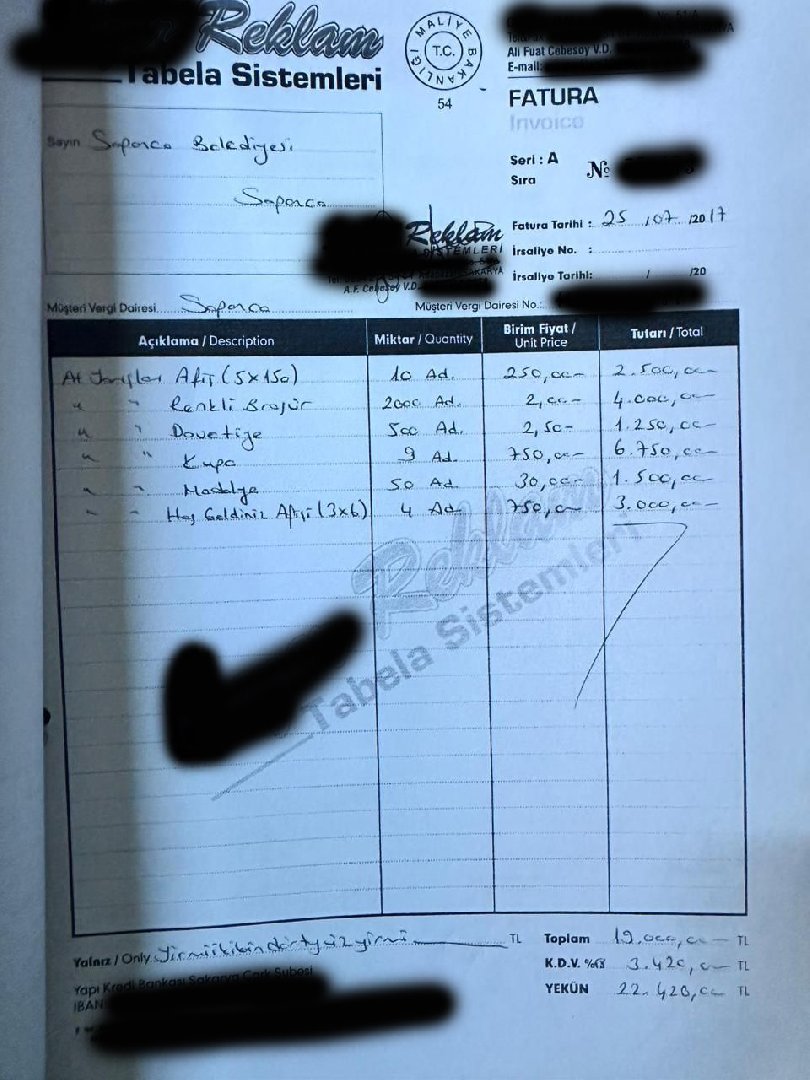 Reklam
Tabela Sistemleri
T.C. MALİYE BAKANLIĞI
54
Ali Fuat Cebesoy V.D.
E-mail:
FATURA
Invoice
Sayın Saparca Belediyesi
Saparca
Seri : A
Sıra
№
Fatura Tarihi : 25 /07 /2017
İrsaliye No. :
İrsaliye Tarihi: / /20
Reklam
SİSTEMLERİ
A.F. Cebesoy V.D.
SAKARYA
Müşteri Vergi Dairesi Saparca
Müşteri Vergi Dairesi No.:
Açıklama / Description Miktar / Quantity Birim Fiyat / Unit Price Tutarı / Total
At Yarışları Afiş (5x150) 10 Ad. 250,00 2.500,00
" " Renkli Broşür 2000 Ad. 2,00 4.000,00
" " Davetiye 500 Ad. 2,50 1.250,00
" " Kupa 9 Ad. 750,00 6.750,00
" " Madalya 50 Ad 30,00 1.500,00
" " Hoş Geldiniz Afişi (3x6) 4 Ad 750,00 3.000,00
Reklam
Tabela Sistemleri
Yalnız / Only Yirmiikibindörtyüzyirmi TL
Toplam 19.000,00 TL
K.D.V. %18 3.420,00 TL
YEKÜN 22.420,00 TL
Yapı Kredi Bankası Sakarya Çark Şubesi
IBAN